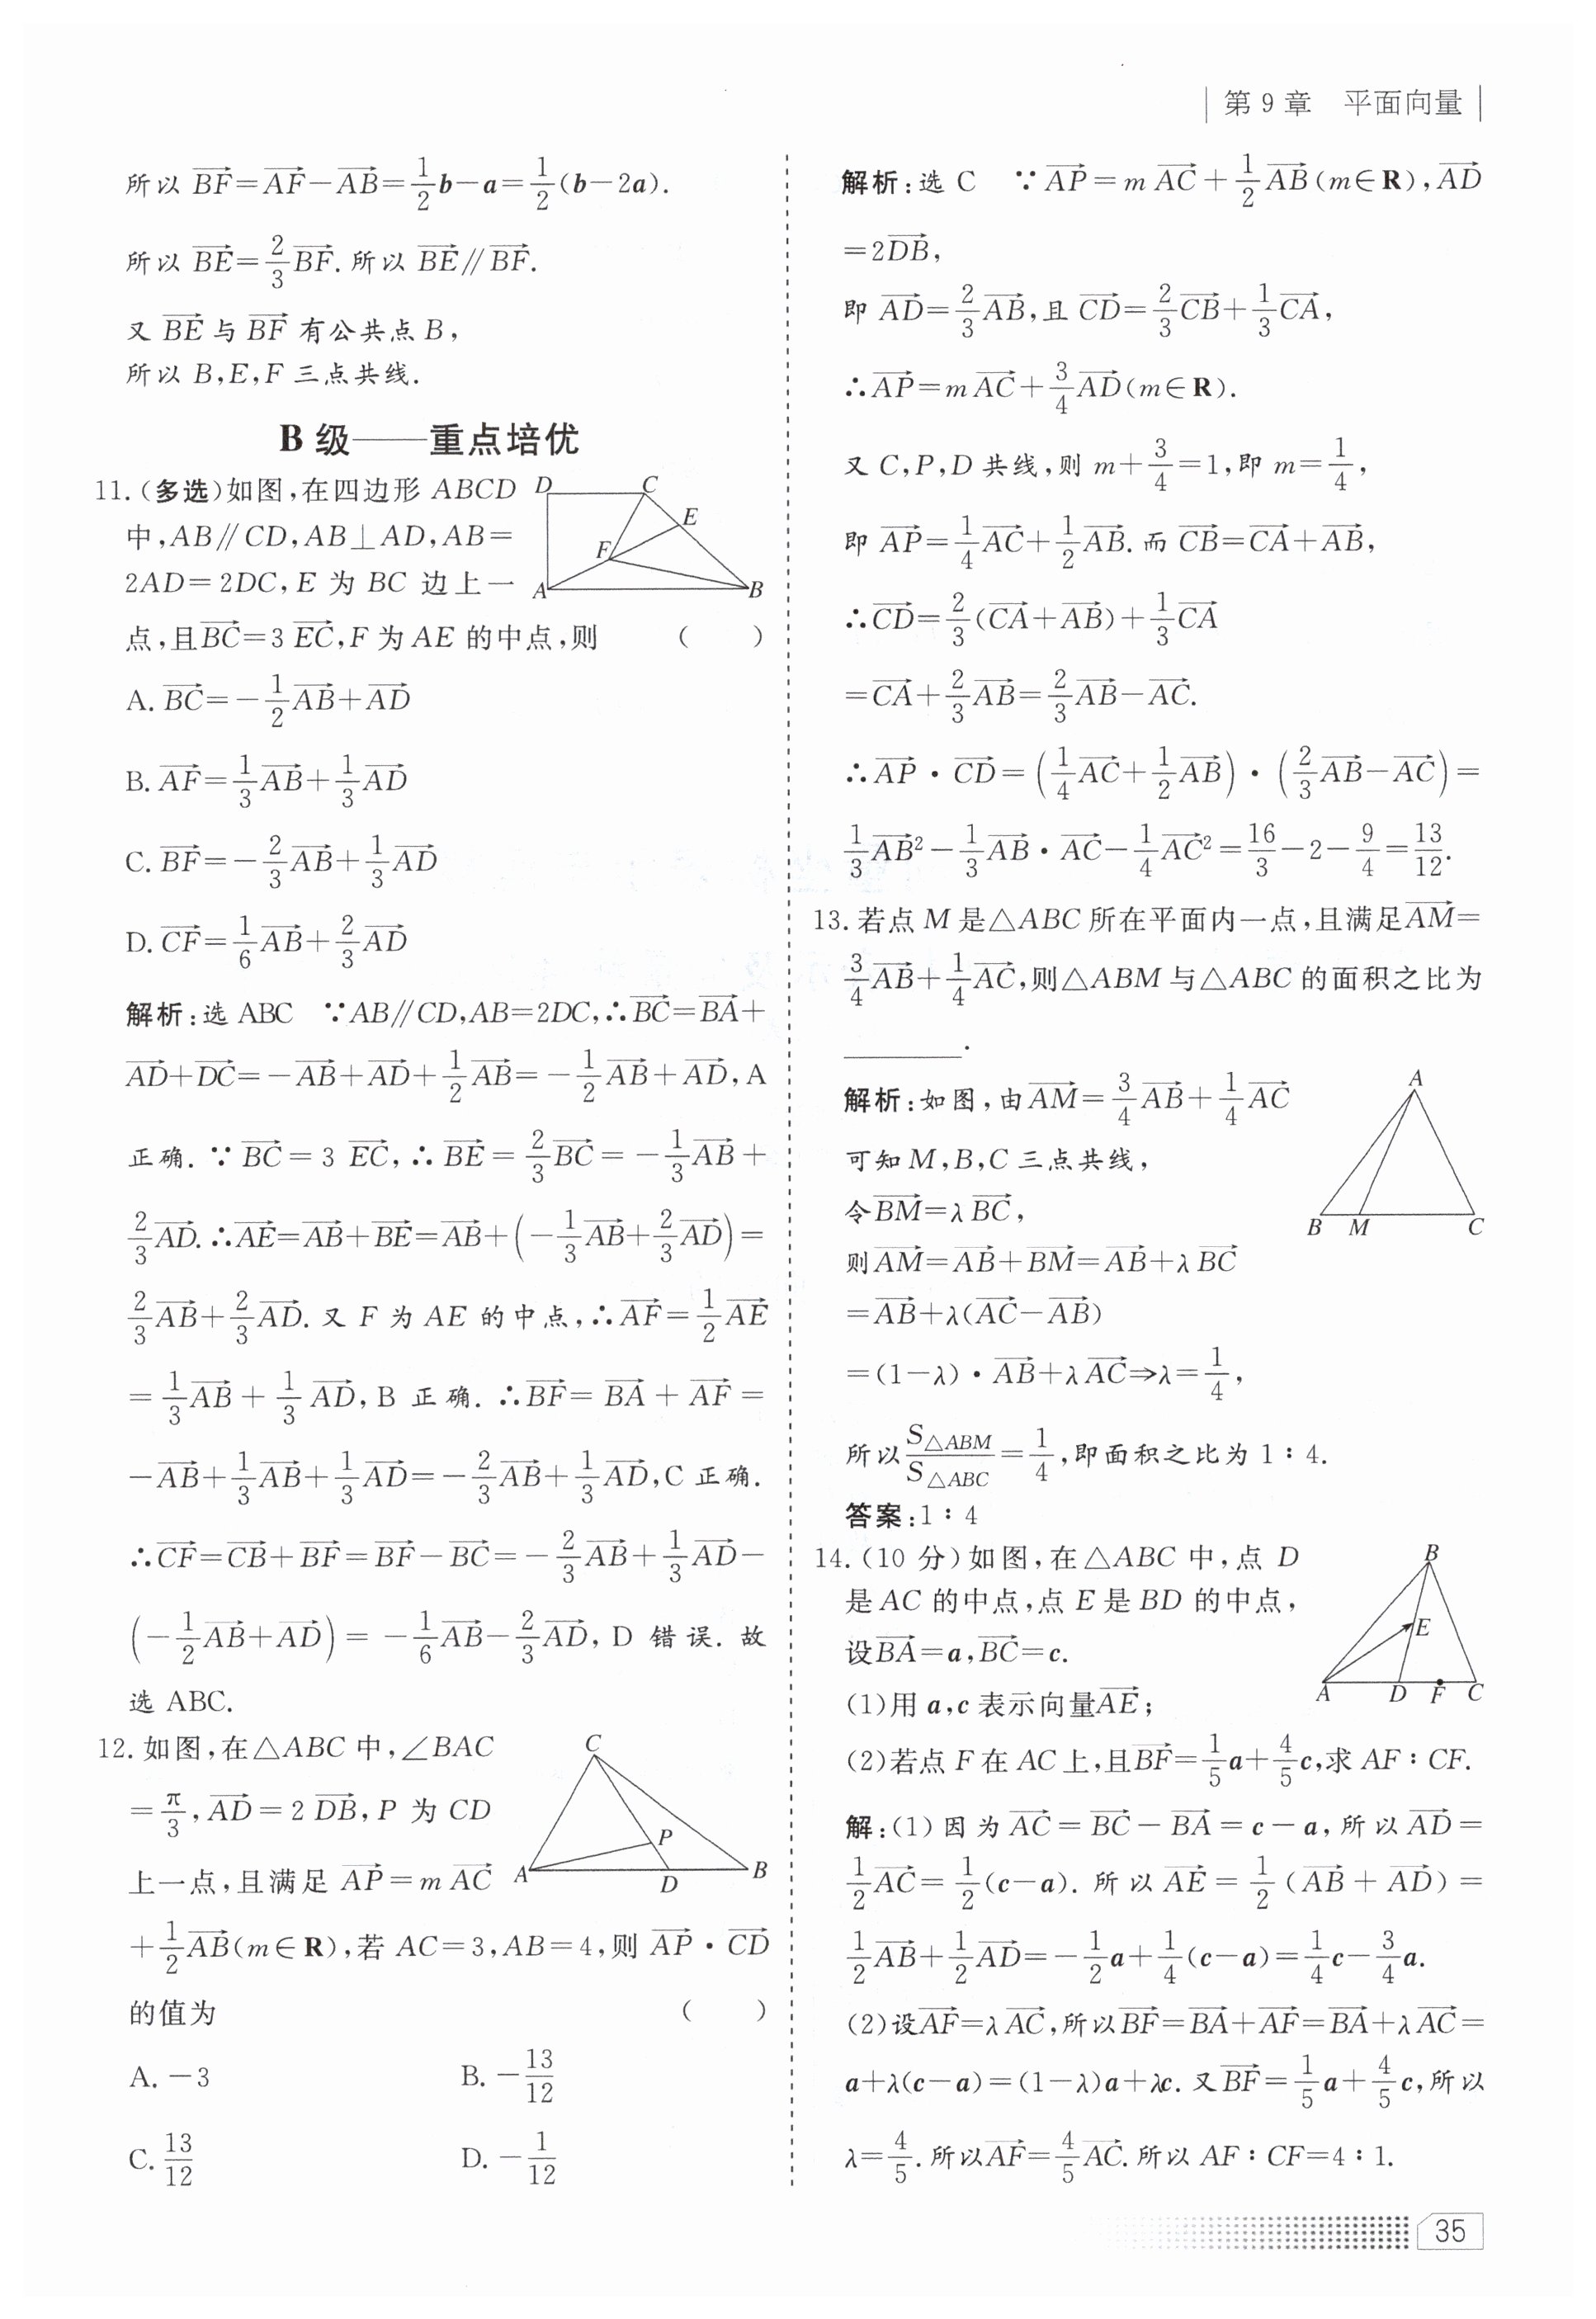 第 9 章 平面向量
所以 $\overrightarrow{BF}=\overrightarrow{AF}-\overrightarrow{AB}=\frac{1}{2}\boldsymbol{b}-\boldsymbol{a}=\frac{1}{2}(\boldsymbol{b}-2\boldsymbol{a})$.
所以 $\overrightarrow{BE}=\frac{2}{3}\overrightarrow{BF}$. 所以 $\overrightarrow{BE}∥\overrightarrow{BF}$.
又 $\overrightarrow{BE}$ 与 $\overrightarrow{BF}$ 有公共点 B,
所以 B,E,F 三点共线.
B 级——重点培优
11.(多选)如图,在四边形 ABCD
中,AB∥CD,AB⊥AD,AB=
2AD=2DC,E 为 BC 边上一
点,且$\overrightarrow{BC}=3\overrightarrow{EC}$,F 为 AE 的中点,则 ( )
D C E F A B
A. $\overrightarrow{BC}=-\frac{1}{2}\overrightarrow{AB}+\overrightarrow{AD}$
B. $\overrightarrow{AF}=\frac{1}{3}\overrightarrow{AB}+\frac{1}{3}\overrightarrow{AD}$
C. $\overrightarrow{BF}=-\frac{2}{3}\overrightarrow{AB}+\frac{1}{3}\overrightarrow{AD}$
D. $\overrightarrow{CF}=\frac{1}{6}\overrightarrow{AB}+\frac{2}{3}\overrightarrow{AD}$
解析:选 ABC ∵AB∥CD,AB=2DC,∴$\overrightarrow{BC}=\overrightarrow{BA}+$
$\overrightarrow{AD}+\overrightarrow{DC}=-\overrightarrow{AB}+\overrightarrow{AD}+\frac{1}{2}\overrightarrow{AB}=-\frac{1}{2}\overrightarrow{AB}+\overrightarrow{AD}$,A
正确. ∵$\overrightarrow{BC}=3\overrightarrow{EC}$,∴$\overrightarrow{BE}=\frac{2}{3}\overrightarrow{BC}=-\frac{1}{3}\overrightarrow{AB}+$
$\frac{2}{3}\overrightarrow{AD}$. ∴$\overrightarrow{AE}=\overrightarrow{AB}+\overrightarrow{BE}=\overrightarrow{AB}+\left(-\frac{1}{3}\overrightarrow{AB}+\frac{2}{3}\overrightarrow{AD}\right)=$
$\frac{2}{3}\overrightarrow{AB}+\frac{2}{3}\overrightarrow{AD}$. 又 F 为 AE 的中点,∴$\overrightarrow{AF}=\frac{1}{2}\overrightarrow{AE}$
$=\frac{1}{3}\overrightarrow{AB}+\frac{1}{3}\overrightarrow{AD}$,B 正确. ∴$\overrightarrow{BF}=\overrightarrow{BA}+\overrightarrow{AF}=$
$-\overrightarrow{AB}+\frac{1}{3}\overrightarrow{AB}+\frac{1}{3}\overrightarrow{AD}=-\frac{2}{3}\overrightarrow{AB}+\frac{1}{3}\overrightarrow{AD}$,C 正确.
∴$\overrightarrow{CF}=\overrightarrow{CB}+\overrightarrow{BF}=\overrightarrow{BF}-\overrightarrow{BC}=-\frac{2}{3}\overrightarrow{AB}+\frac{1}{3}\overrightarrow{AD}-$
$\left(-\frac{1}{2}\overrightarrow{AB}+\overrightarrow{AD}\right)=-\frac{1}{6}\overrightarrow{AB}-\frac{2}{3}\overrightarrow{AD}$,D 错误. 故
选 ABC.
12. 如图,在△ABC 中,∠BAC
$=\frac{π}{3}$,$\overrightarrow{AD}=2\overrightarrow{DB}$,P 为 CD
上一点,且满足 $\overrightarrow{AP}=m\overrightarrow{AC}$
$+\frac{1}{2}\overrightarrow{AB}$(m∈R),若 AC=3,AB=4,则 $\overrightarrow{AP}·\overrightarrow{CD}$
的值为 ( )
C P A D B
A. -3 B. $-\frac{13}{12}$
C. $\frac{13}{12}$ D. $-\frac{1}{12}$
解析:选 C ∵$\overrightarrow{AP}=m\overrightarrow{AC}+\frac{1}{2}\overrightarrow{AB}$(m∈R),$\overrightarrow{AD}$
$=2\overrightarrow{DB}$,
即 $\overrightarrow{AD}=\frac{2}{3}\overrightarrow{AB}$,且 $\overrightarrow{CD}=\frac{2}{3}\overrightarrow{CB}+\frac{1}{3}\overrightarrow{CA}$,
∴$\overrightarrow{AP}=m\overrightarrow{AC}+\frac{3}{4}\overrightarrow{AD}$(m∈R).
又 C,P,D 共线,则 $m+\frac{3}{4}=1$,即 $m=\frac{1}{4}$,
即 $\overrightarrow{AP}=\frac{1}{4}\overrightarrow{AC}+\frac{1}{2}\overrightarrow{AB}$. 而 $\overrightarrow{CB}=\overrightarrow{CA}+\overrightarrow{AB}$,
∴$\overrightarrow{CD}=\frac{2}{3}(\overrightarrow{CA}+\overrightarrow{AB})+\frac{1}{3}\overrightarrow{CA}$
$=\overrightarrow{CA}+\frac{2}{3}\overrightarrow{AB}=\frac{2}{3}\overrightarrow{AB}-\overrightarrow{AC}$.
∴$\overrightarrow{AP}·\overrightarrow{CD}=\left(\frac{1}{4}\overrightarrow{AC}+\frac{1}{2}\overrightarrow{AB}\right)·\left(\frac{2}{3}\overrightarrow{AB}-\overrightarrow{AC}\right)=$
$\frac{1}{3}\overrightarrow{AB}^2-\frac{1}{3}\overrightarrow{AB}·\overrightarrow{AC}-\frac{1}{4}\overrightarrow{AC}^2=\frac{16}{3}-2-\frac{9}{4}=\frac{13}{12}$.
13. 若点 M 是△ABC 所在平面内一点,且满足$\overrightarrow{AM}=$
$\frac{3}{4}\overrightarrow{AB}+\frac{1}{4}\overrightarrow{AC}$,则△ABM 与△ABC 的面积之比为
________.
解析:如图,由$\overrightarrow{AM}=\frac{3}{4}\overrightarrow{AB}+\frac{1}{4}\overrightarrow{AC}$
可知 M,B,C 三点共线,
令$\overrightarrow{BM}=λ\overrightarrow{BC}$,
则$\overrightarrow{AM}=\overrightarrow{AB}+\overrightarrow{BM}=\overrightarrow{AB}+λ\overrightarrow{BC}$
$=\overrightarrow{AB}+λ(\overrightarrow{AC}-\overrightarrow{AB})$
$=(1-λ)·\overrightarrow{AB}+λ\overrightarrow{AC}⇒λ=\frac{1}{4}$,
A B M C
所以$\frac{S_{△ABM}}{S_{△ABC}}=\frac{1}{4}$,即面积之比为 1∶4.
答案:1∶4
14.(10 分)如图,在△ABC 中,点 D
是 AC 的中点,点 E 是 BD 的中点,
设$\overrightarrow{BA}=\boldsymbol{a}$,$\overrightarrow{BC}=\boldsymbol{c}$.
(1)用 a,c 表示向量$\overrightarrow{AE}$;
B E A D F C
(2)若点 F 在 AC 上,且$\overrightarrow{BF}=\frac{1}{5}\boldsymbol{a}+\frac{4}{5}\boldsymbol{c}$,求 AF∶CF.
解:(1)因为 $\overrightarrow{AC}=\overrightarrow{BC}-\overrightarrow{BA}=\boldsymbol{c}-\boldsymbol{a}$,所以 $\overrightarrow{AD}=$
$\frac{1}{2}\overrightarrow{AC}=\frac{1}{2}(\boldsymbol{c}-\boldsymbol{a})$. 所以 $\overrightarrow{AE}=\frac{1}{2}(\overrightarrow{AB}+\overrightarrow{AD})=$
$\frac{1}{2}\overrightarrow{AB}+\frac{1}{2}\overrightarrow{AD}=-\frac{1}{2}\boldsymbol{a}+\frac{1}{4}(\boldsymbol{c}-\boldsymbol{a})=\frac{1}{4}\boldsymbol{c}-\frac{3}{4}\boldsymbol{a}$.
(2)设$\overrightarrow{AF}=λ\overrightarrow{AC}$,所以$\overrightarrow{BF}=\overrightarrow{BA}+\overrightarrow{AF}=\overrightarrow{BA}+λ\overrightarrow{AC}=$
$\boldsymbol{a}+λ(\boldsymbol{c}-\boldsymbol{a})=(1-λ)\boldsymbol{a}+λ\boldsymbol{c}$. 又$\overrightarrow{BF}=\frac{1}{5}\boldsymbol{a}+\frac{4}{5}\boldsymbol{c}$,所以
$λ=\frac{4}{5}$. 所以$\overrightarrow{AF}=\frac{4}{5}\overrightarrow{AC}$. 所以 AF∶CF=4∶1.
35